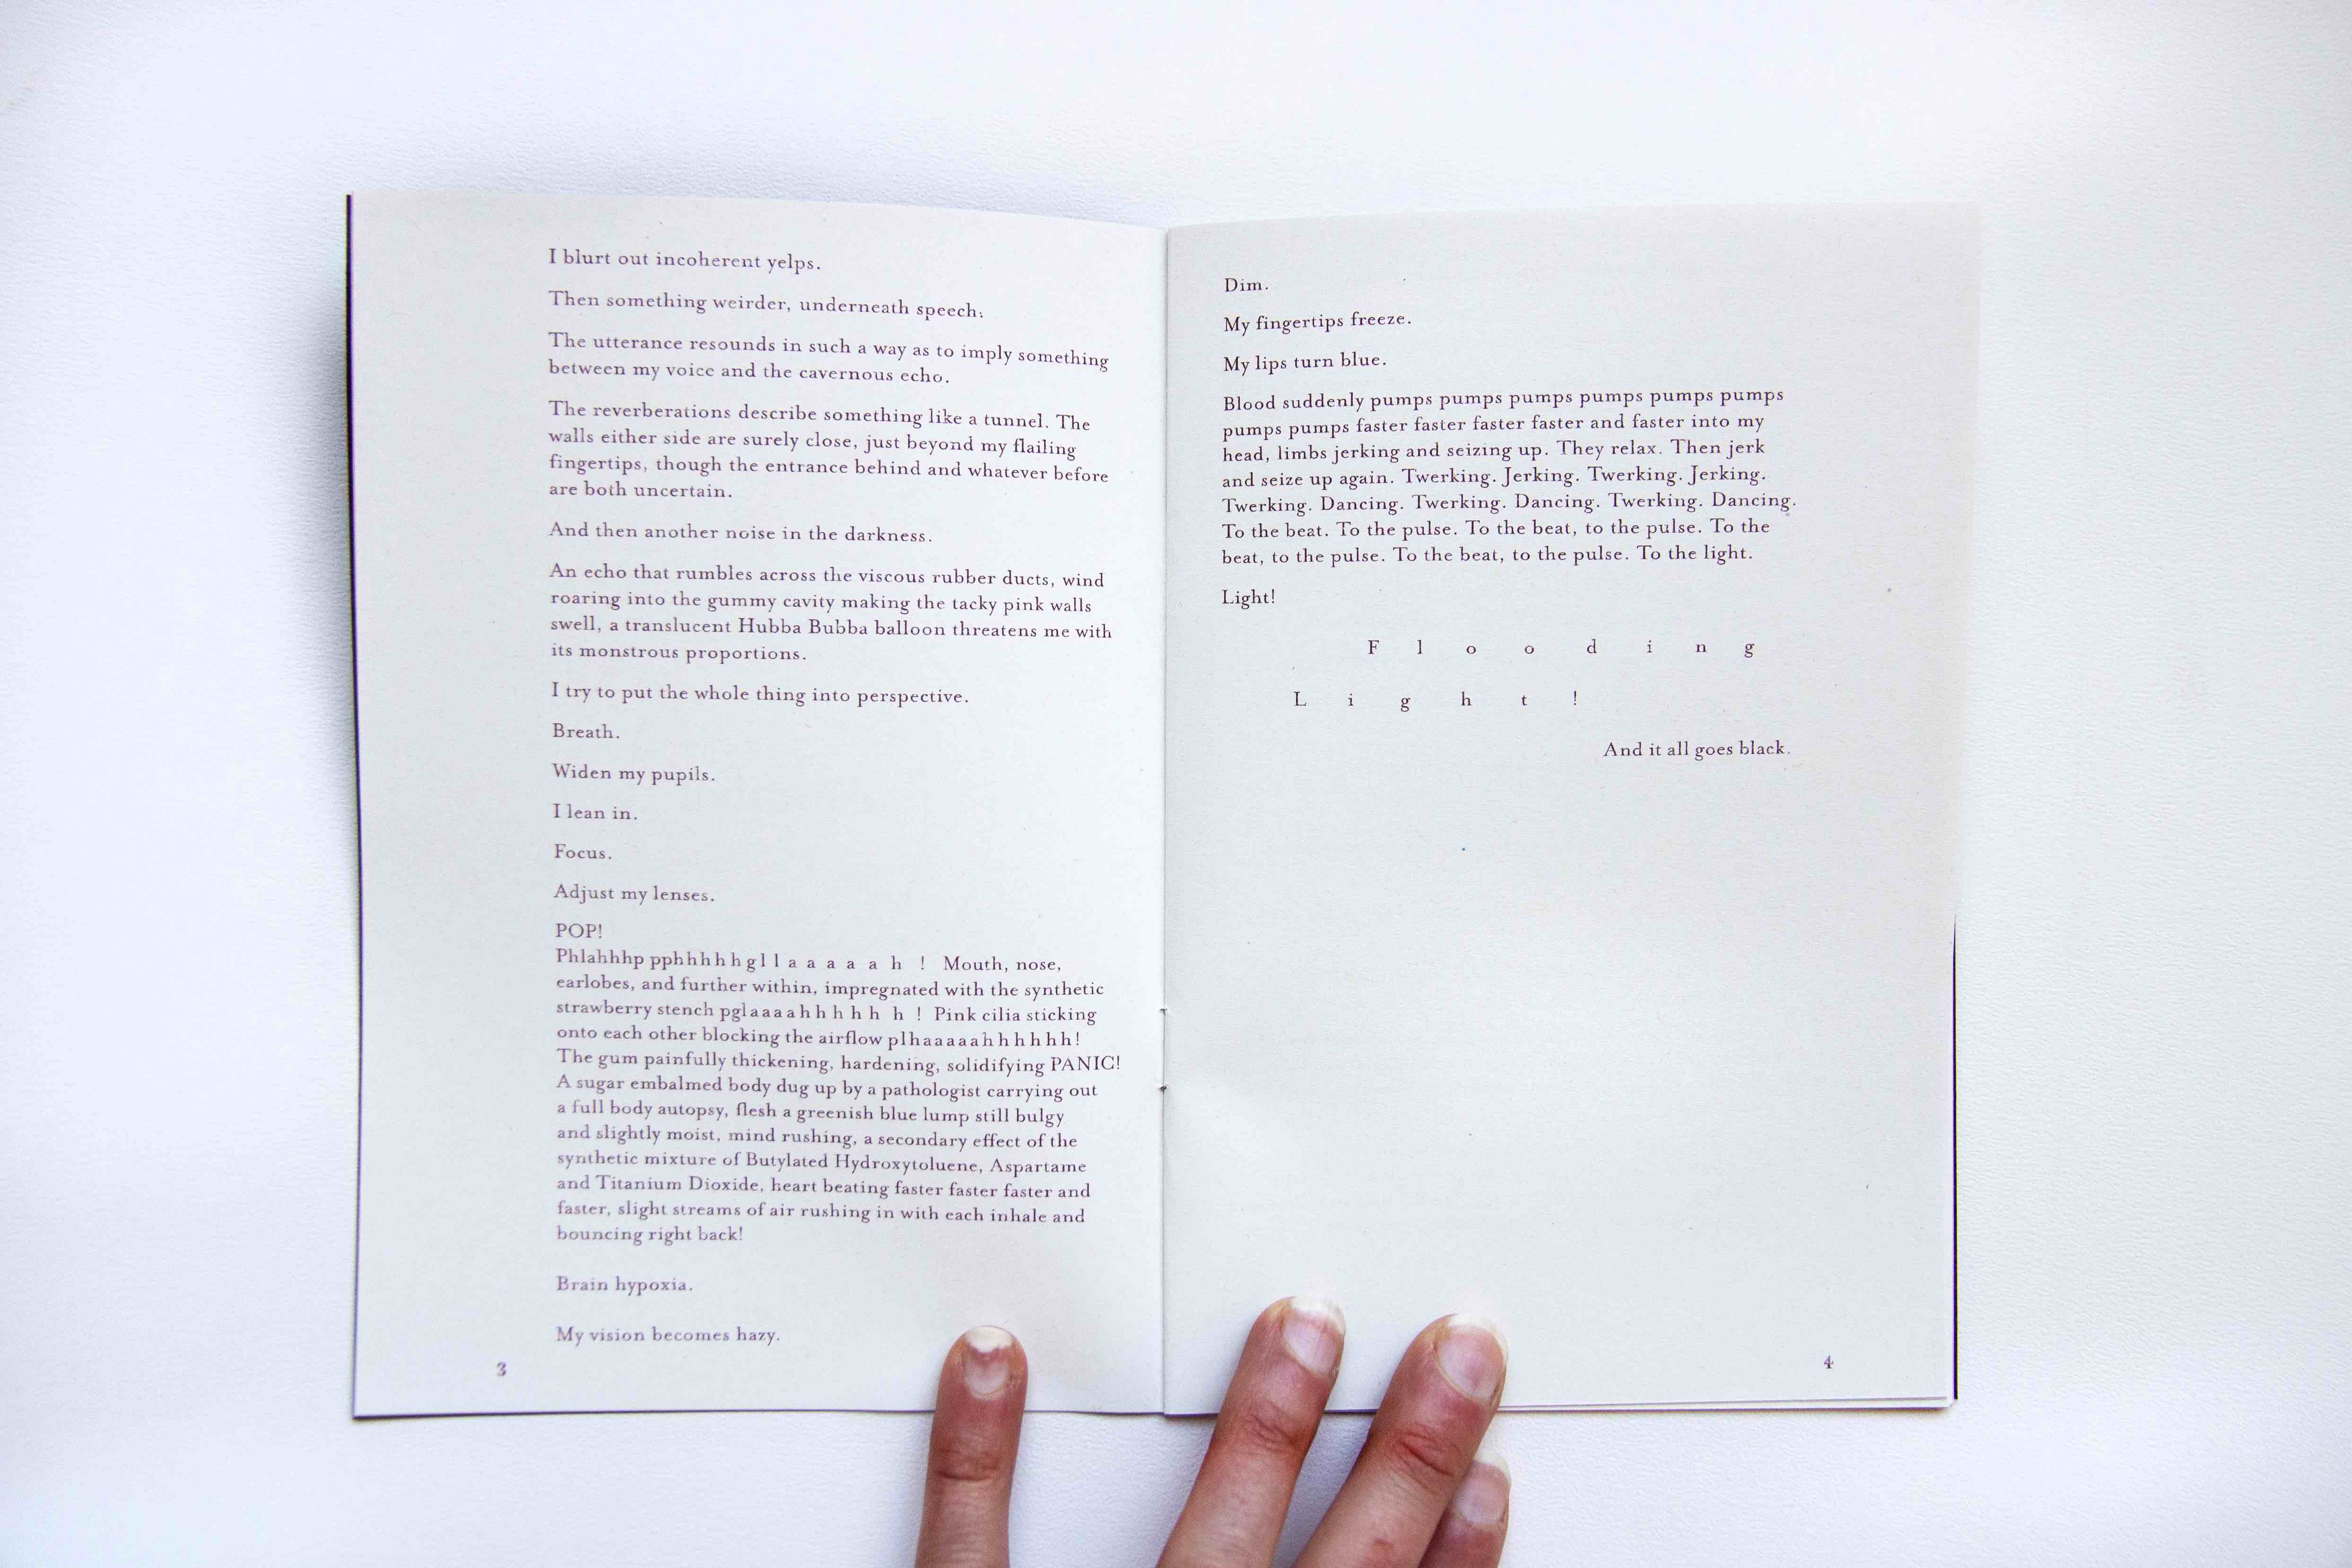 I blurt out incoherent yelps.
Then something weirder, underneath speech:
The utterance resounds in such a way as to imply something
between my voice and the cavernous echo.
The reverberations describe something like a tunnel. The
walls either side are surely close, just beyond my flailing
fingertips, though the entrance behind and whatever before
are both uncertain.
And then another noise in the darkness.
An echo that rumbles across the viscous rubber ducts, wind
roaring into the gummy cavity making the tacky pink walls
swell, a translucent Hubba Bubba balloon threatens me with
its monstrous proportions.
I try to put the whole thing into perspective.
Breath.
Widen my pupils.
I lean in.
Focus.
Adjust my lenses.
POP!
Phlahhhp pphhhhhgll a a a a a h ! Mouth, nose,
earlobes, and further within, impregnated with the synthetic
strawberry stench pglaaaahhhhh h ! Pink cilia sticking
onto each other blocking the airflow plhaaaaahhhhhh!
The gum painfully thickening, hardening, solidifying PANIC!
A sugar embalmed body dug up by a pathologist carrying out
a full body autopsy, flesh a greenish blue lump still bulgy
and slightly moist, mind rushing, a secondary effect of the
synthetic mixture of Butylated Hydroxytoluene, Aspartame
and Titanium Dioxide, heart beating faster faster faster and
faster, slight streams of air rushing in with each inhale and
bouncing right back!
Brain hypoxia.
My vision becomes hazy.
3
Dim.
My fingertips freeze.
My lips turn blue.
Blood suddenly pumps pumps pumps pumps pumps pumps
pumps pumps faster faster faster faster and faster into my
head, limbs jerking and seizing up. They relax. Then jerk
and seize up again. Twerking. Jerking. Twerking. Jerking.
Twerking. Dancing. Twerking. Dancing. Twerking. Dancing.
To the beat. To the pulse. To the beat, to the pulse. To the
beat, to the pulse. To the beat, to the pulse. To the light.
Light!
F l o o d i n g
L i g h t !
And it all goes black.
4